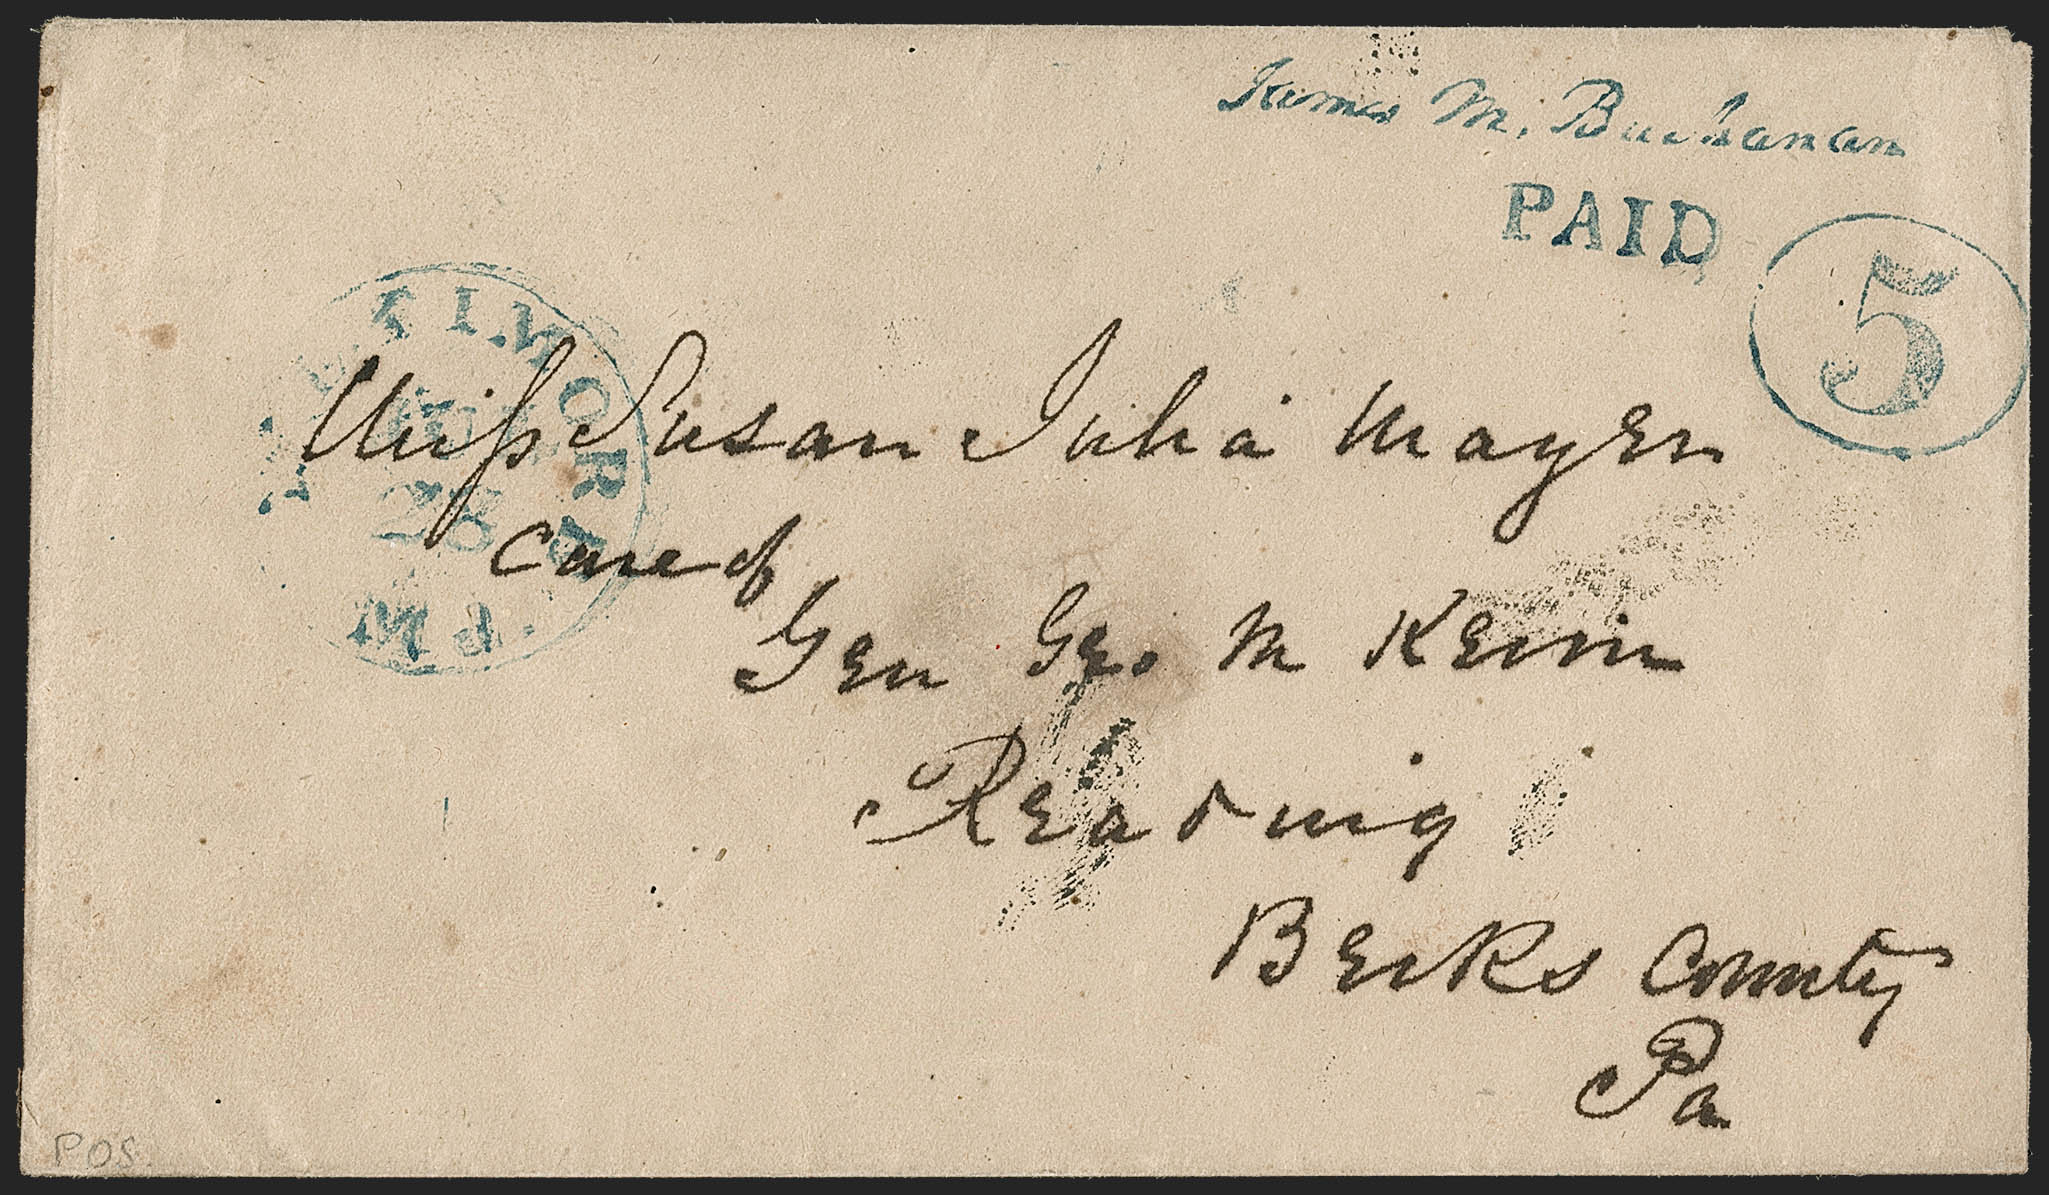 James M. Buchanan
PAID
5
BALTIMORE
JUL
28
Md.
Miss Susan Julia Mayer
Care of
Gen Geo M Keim
Reading
Berks County
Pa
POS